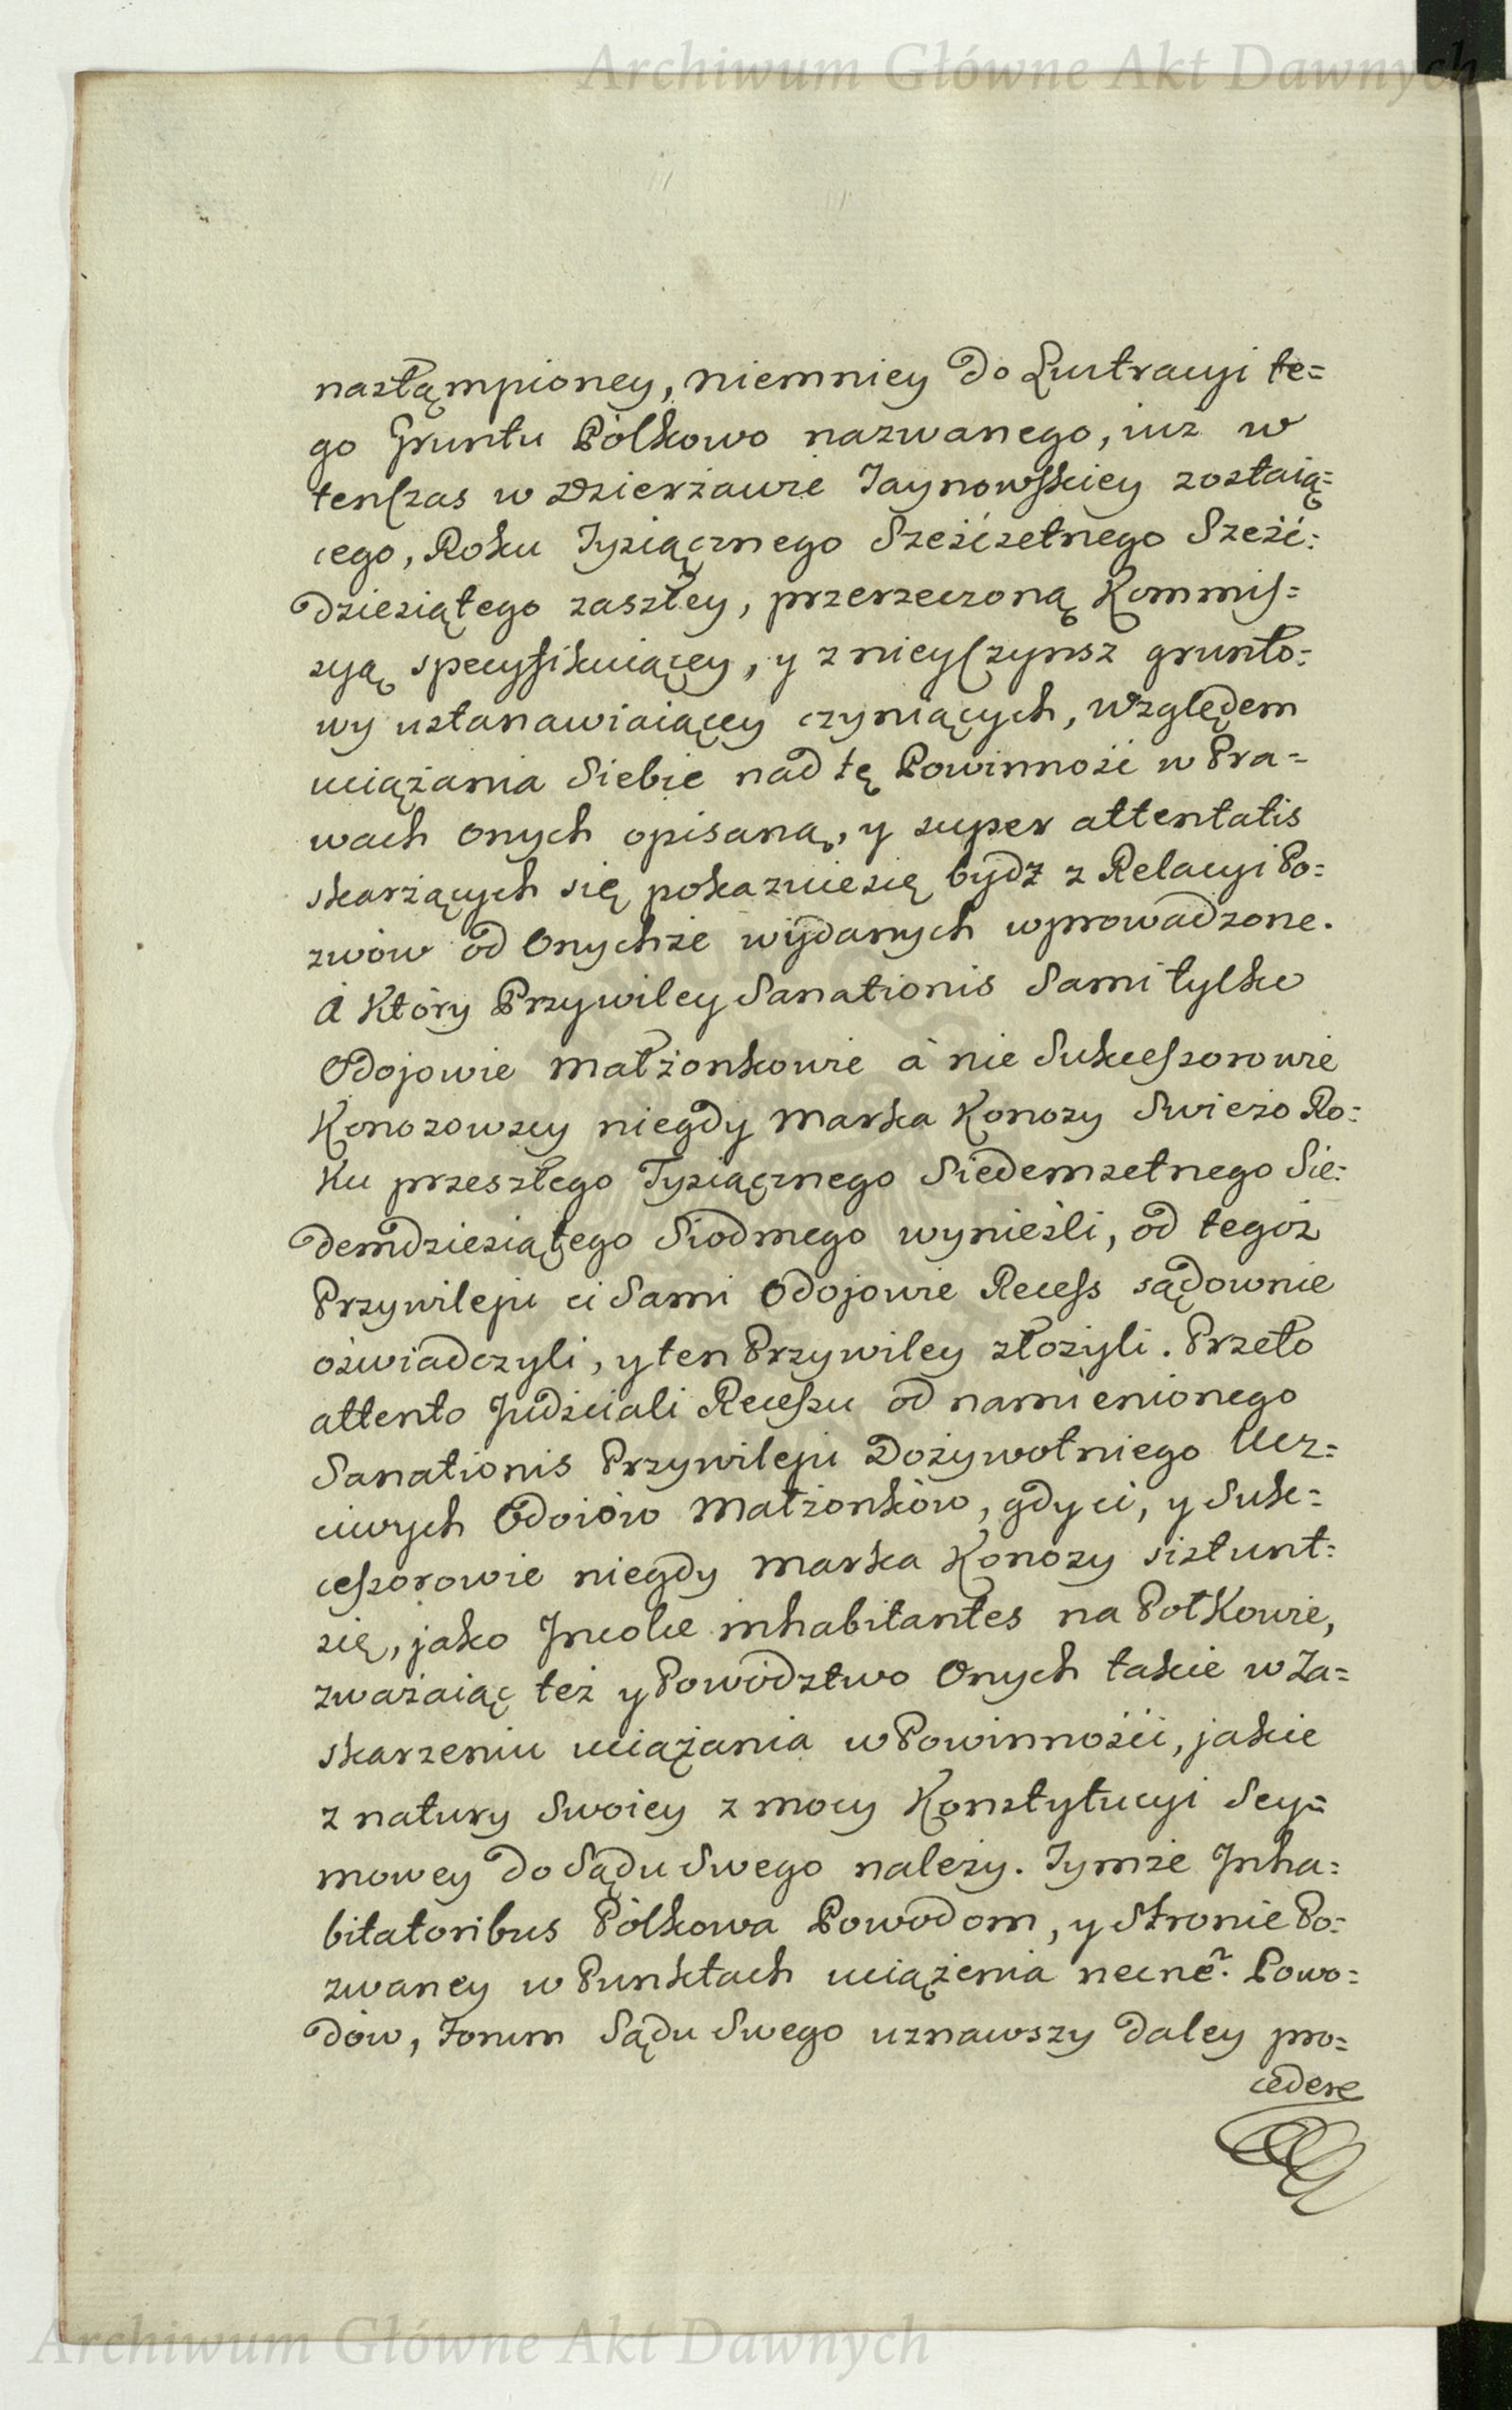 Archiwum Główne Akt Dawnych
nastąmpioney, niemniey do Lustracyi te=
go Gruntu Pólkowo nazwanego, iuż w
tenczas w Dzierżawie Jaynowskiey zostaią=
cego, Roku Tysiącznego Sześćsetnego Sześć=
dziesiątego zaszłey, przerzeczoną Kommis=
syą specyfikuiącey, y z niey czynsz grunto=
wy ustanawiaiącey czyniących, względem
uciążania Siebie nad tę Powinność w Pra=
wach onych opisaną, y super attentatis
skarżących się pokazuie się bydź z Relacyi Po=
zwów od Onychże wydanych wprowadzone.
á Który Przywiley Sanationis Sami tylko
Odojowie Małżonkowie á nie Sukcessorowie
Konozowscy niegdy Marka Konozy Swieżo Ro=
ku przeszłego Tysiącznego Siedemsetnego Sie=
demdziesiątego Siodmego wynieśli, od tegoż
Przywileju ci Sami Odojowie Recess sądownie
oświadczyli, y ten Przywiley złożyli. Przeto
attento Judiciali Recessu od namienionego
Sanationis Przywileju Dożywotniego Ucz=
ciwych Odoiów Małżonków, gdy ci, y Suk=
cessorowie niegdy Marka Konozy sistunt=
się, jako Incolæ inhabitantes na Połkowie,
zważaiąc też y Powództwo Onych takie w Za=
skarzeniu uciążania w Powinności, jakie
z natury Swoiey z mocy Konstytucyi Sey=
mowey do Sądu Swego należy. Tymże Inha=
bitatoribus Pólkowa Powodom, y Stronie Po=
zwaney w Punktach uciążenia necnē. Powo=
dów, Forum Sądu Swego uznawszy daley pro=
cedere
Archiwum Główne Akt Dawnych